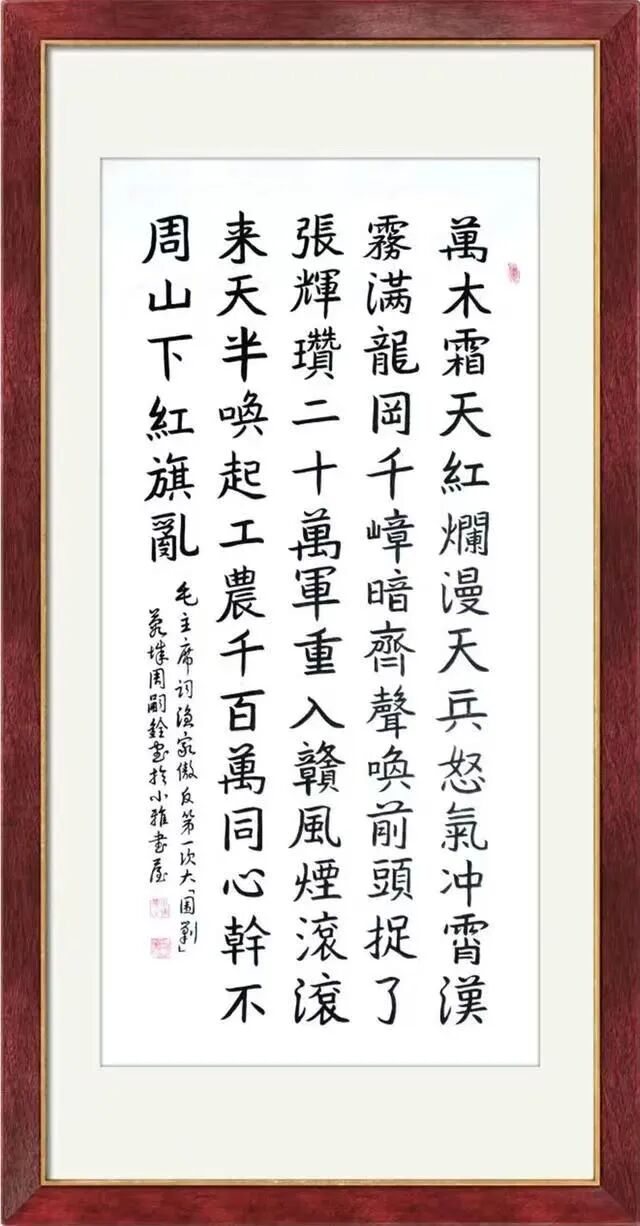 萬木霜天紅爛漫天兵怒氣冲霄漢
霧满龍岡千嶂暗齊聲唤前頭捉了
張輝瓚二十萬軍重入贛風煙滾滾
来天半唤起工農千百萬同心幹不
周山下紅旗亂
毛主席词渔家傲反第一次大「围剿」
周嗣銓书於小雅書屋